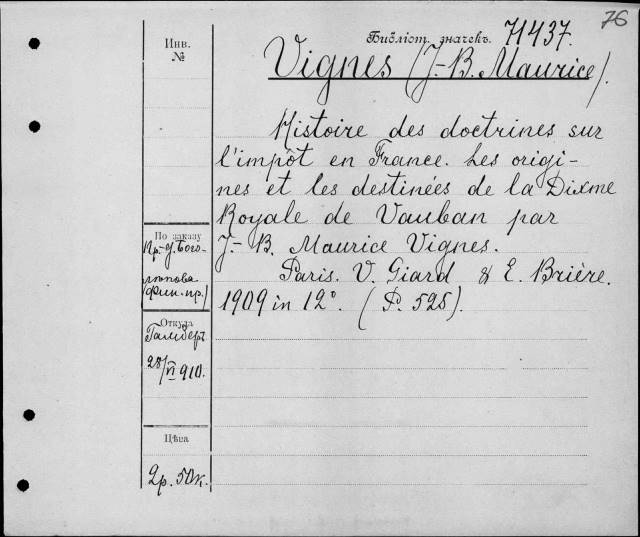 76
Библіот. значекъ. 71437.
Инв.
№
Vignes (J.-B. Maurice).
Histoire des doctrines sur
l'impôt en France. Les origi-
nes et les destinées de la Dixme
Royale de Vauban par
J.-B. Maurice Vignes.
Paris. V. Giard & E. Brière.
1909 in 12°. (P. 525).
По заказу
Пр.-д. Бого-
лѣпова
(Фин. пр.)
Откуда
Гамбер
28/VI 910.
Цѣна
2р. 50к.